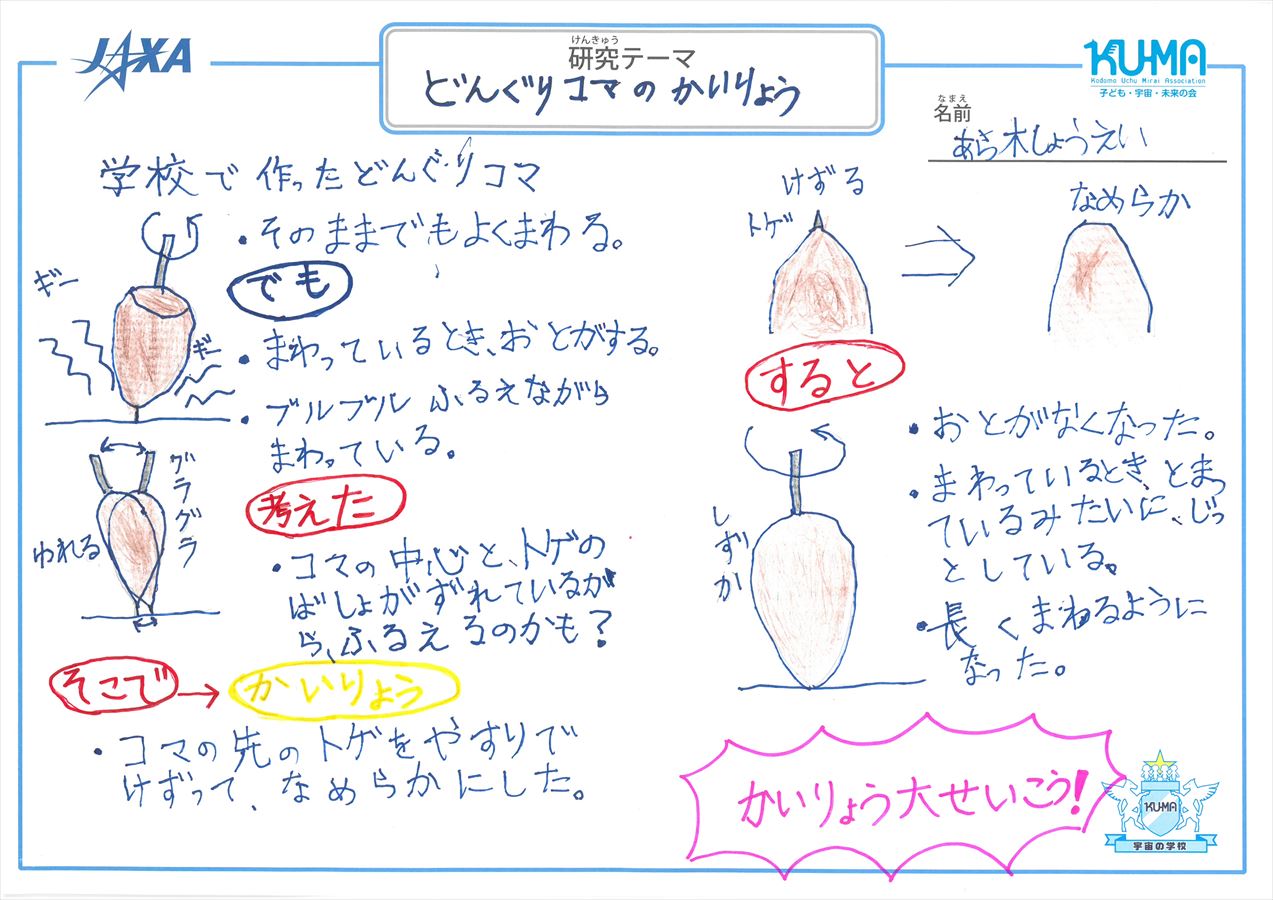 JAXA
けんきゅう
研究テーマ
どんぐりコマのかいりょう
KU-MA
Kodomo Uchu Mirai Association
子ども・宇宙・未来の会
なまえ
名前
あら木しょうえい
学校で作ったどんぐりコマ
・そのままでもよくまわる。
でも
ギー
ギー
・まわっているとき、おとがする。
・ブルブルふるえながら
まわっている。
グラグラ
ゆれる
考えた
・コマの中心と、トゲの
ばしょがずれているか
ら、ふるえるのかも?
そこで→かいりょう
・コマの先のトゲをやすりで
けずって、なめらかにした。
けずる
トゲ
なめらか
すると
しずか
・おとがなくなった。
・まわっているとき、とまっ
ているみたいに、じっ
としている。
・長くまわるように
なった。
かいりょう大せいこう!
KU-MA
宇宙の学校